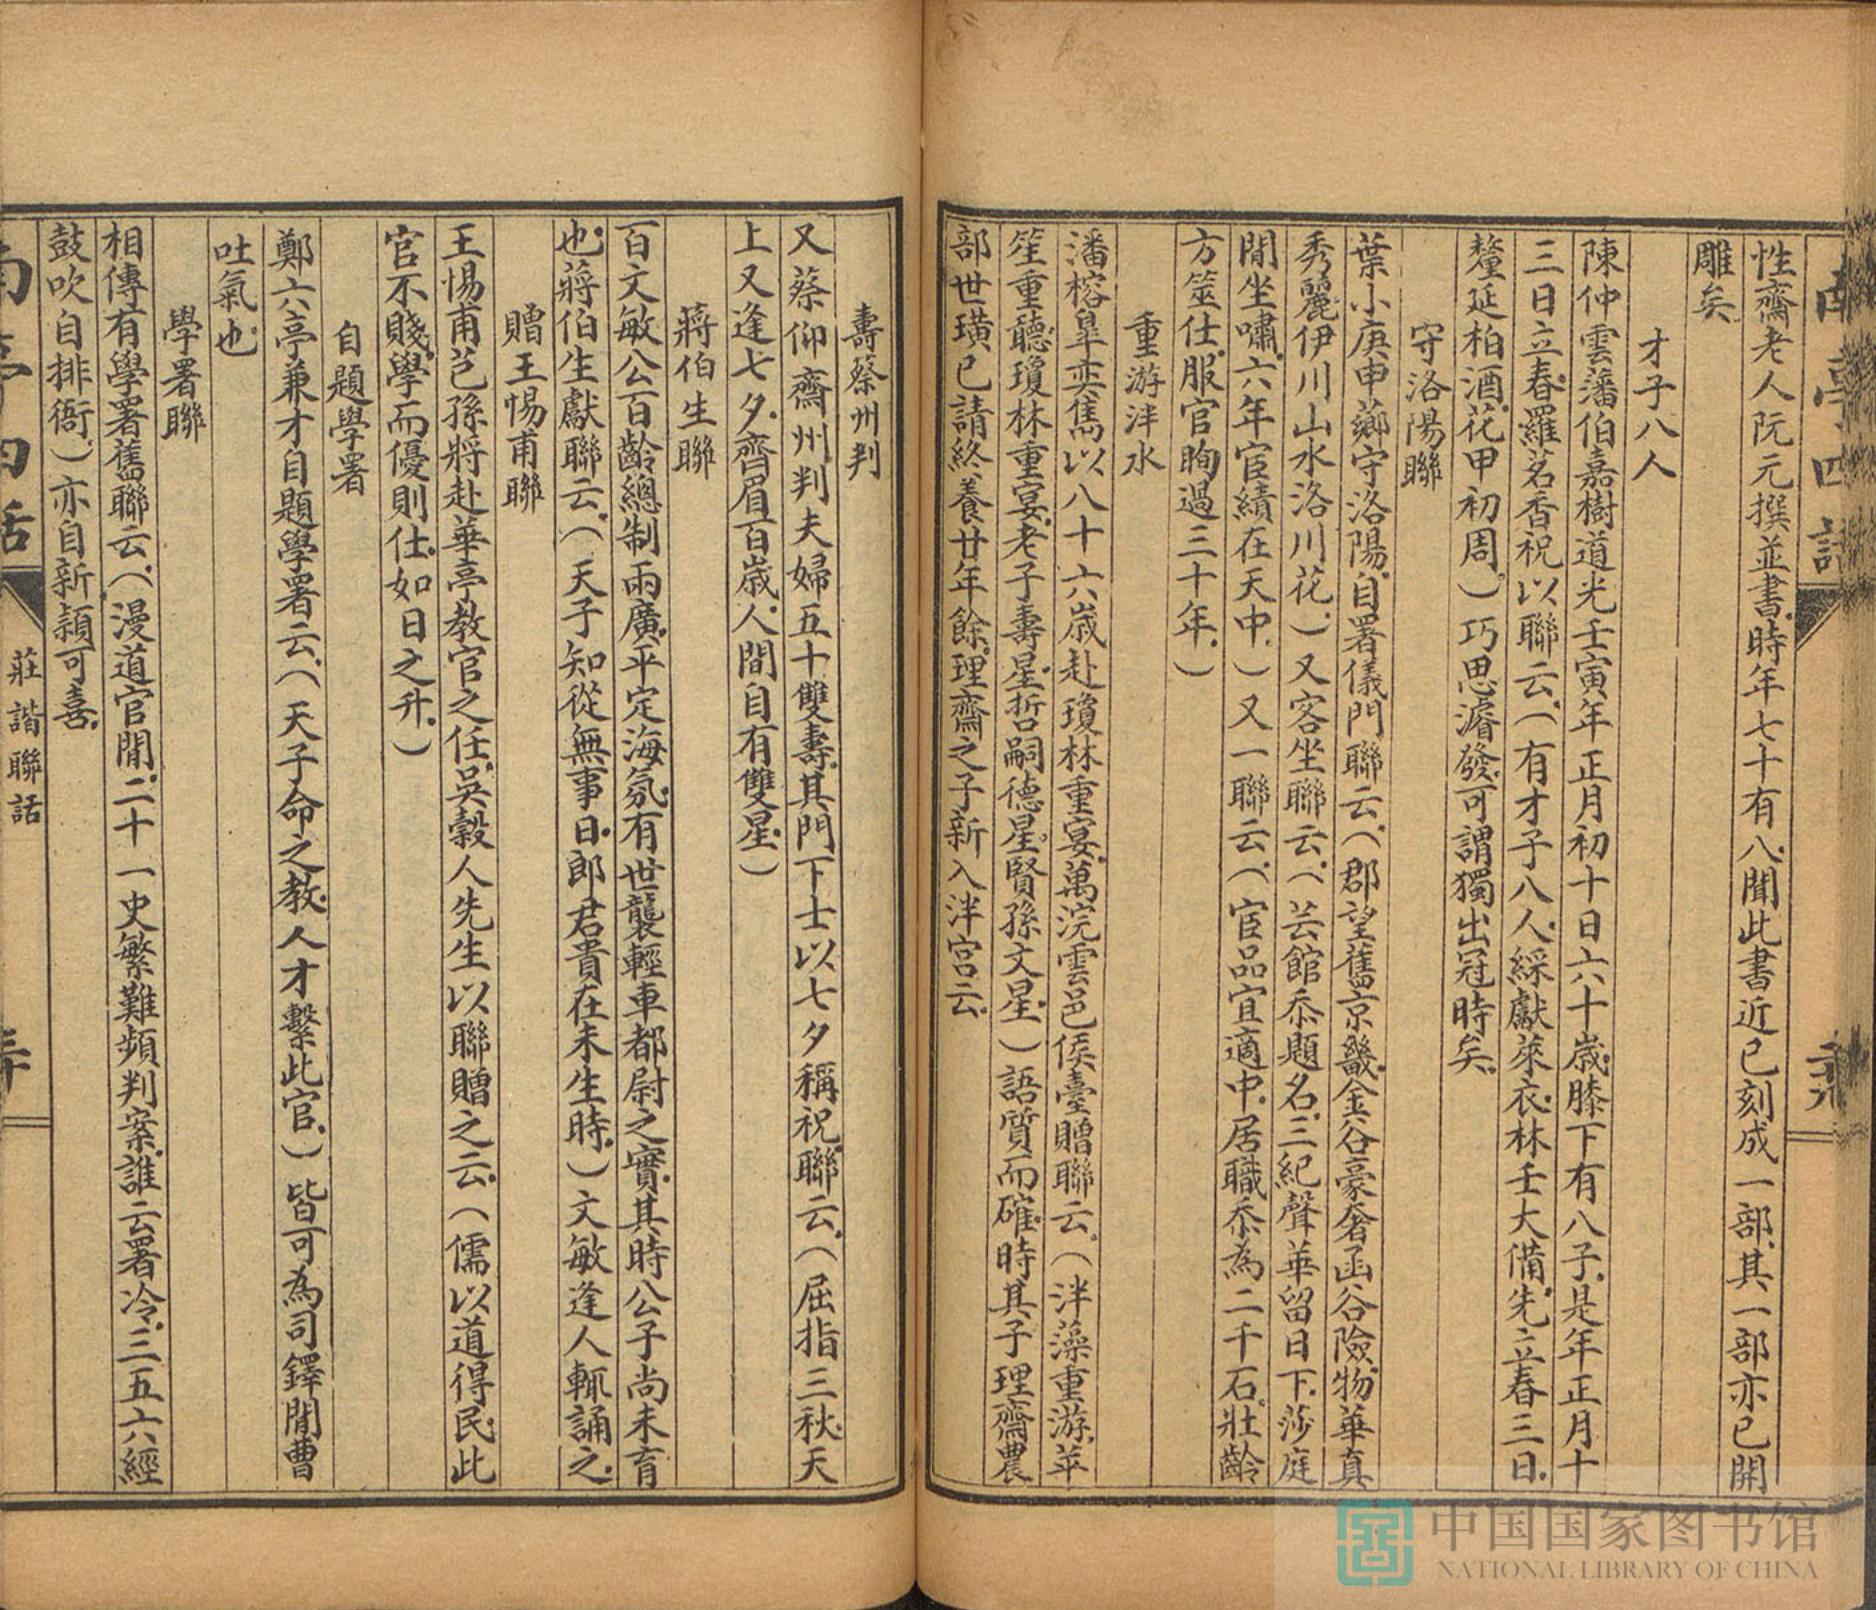 南亭四話
性齋老人阮元撰並書時年七十有八聞此書近已刻成一部其一部亦已開
雕矣
才子八人
陳仲雲藩伯嘉樹道光壬寅年正月初十日六十歲膝下有八子是年正月十
三日立春羅茗香祝以聯云（有才子八人綵獻萊衣林壬大備先立春三日
釐延柏酒花甲初周）巧思濬發可謂獨出冠時矣
守洛陽聯
葉小庚申薌守洛陽自署儀門聯云（郡望舊京畿金谷豪奢函谷險物華真
秀麗伊川山水洛川花）又客坐聯云（芸館忝題名三紀聲華留日下莎庭
閒坐嘯六年宦績在天中）又一聯云（宦品宜適中居職忝為二千石壯齡
方筮仕服官眴過三十年）
重游泮水
潘榕皐奕雋以八十六歲赴瓊林重宴萬浣雲邑侯臺贈聯云（泮藻重游苹
笙重聽瓊林重宴老子壽星哲嗣德星賢孫文星）語質而確時其子理齋農
部世璜已請終養廿年餘理齋之子新入泮宮云
壽蔡州判
又蔡仰齋州判夫婦五十雙壽其門下士以七夕稱祝聯云（屈指三秋天
上又逢七夕齊眉百歲人間自有雙星）
蔣伯生聯
百文敏公百齡總制兩廣平定海氛有世襲輕車都尉之賞其時公子尚未育
也蔣伯生獻聯云（天子知從無事日郎君貴在未生時）文敏逢人輒誦之
贈王惕甫聯
王惕甫芑孫將赴華亭教官之任吳穀人先生以聯贈之云（儒以道得民此
官不賤學而優則仕如日之升）
自題學署
鄭六亭兼才自題學署云（天子命之教人才繫此官）皆可為司鐸閒曹
吐氣也
學署聯
相傳有學署舊聯云（漫道官閒二十一史繁難頻判案誰云署冷三五六經
鼓吹自排衙）亦自新穎可喜
南亭四話
莊諧聯話
中国国家图书馆
NATIONAL LIBRARY OF CHINA